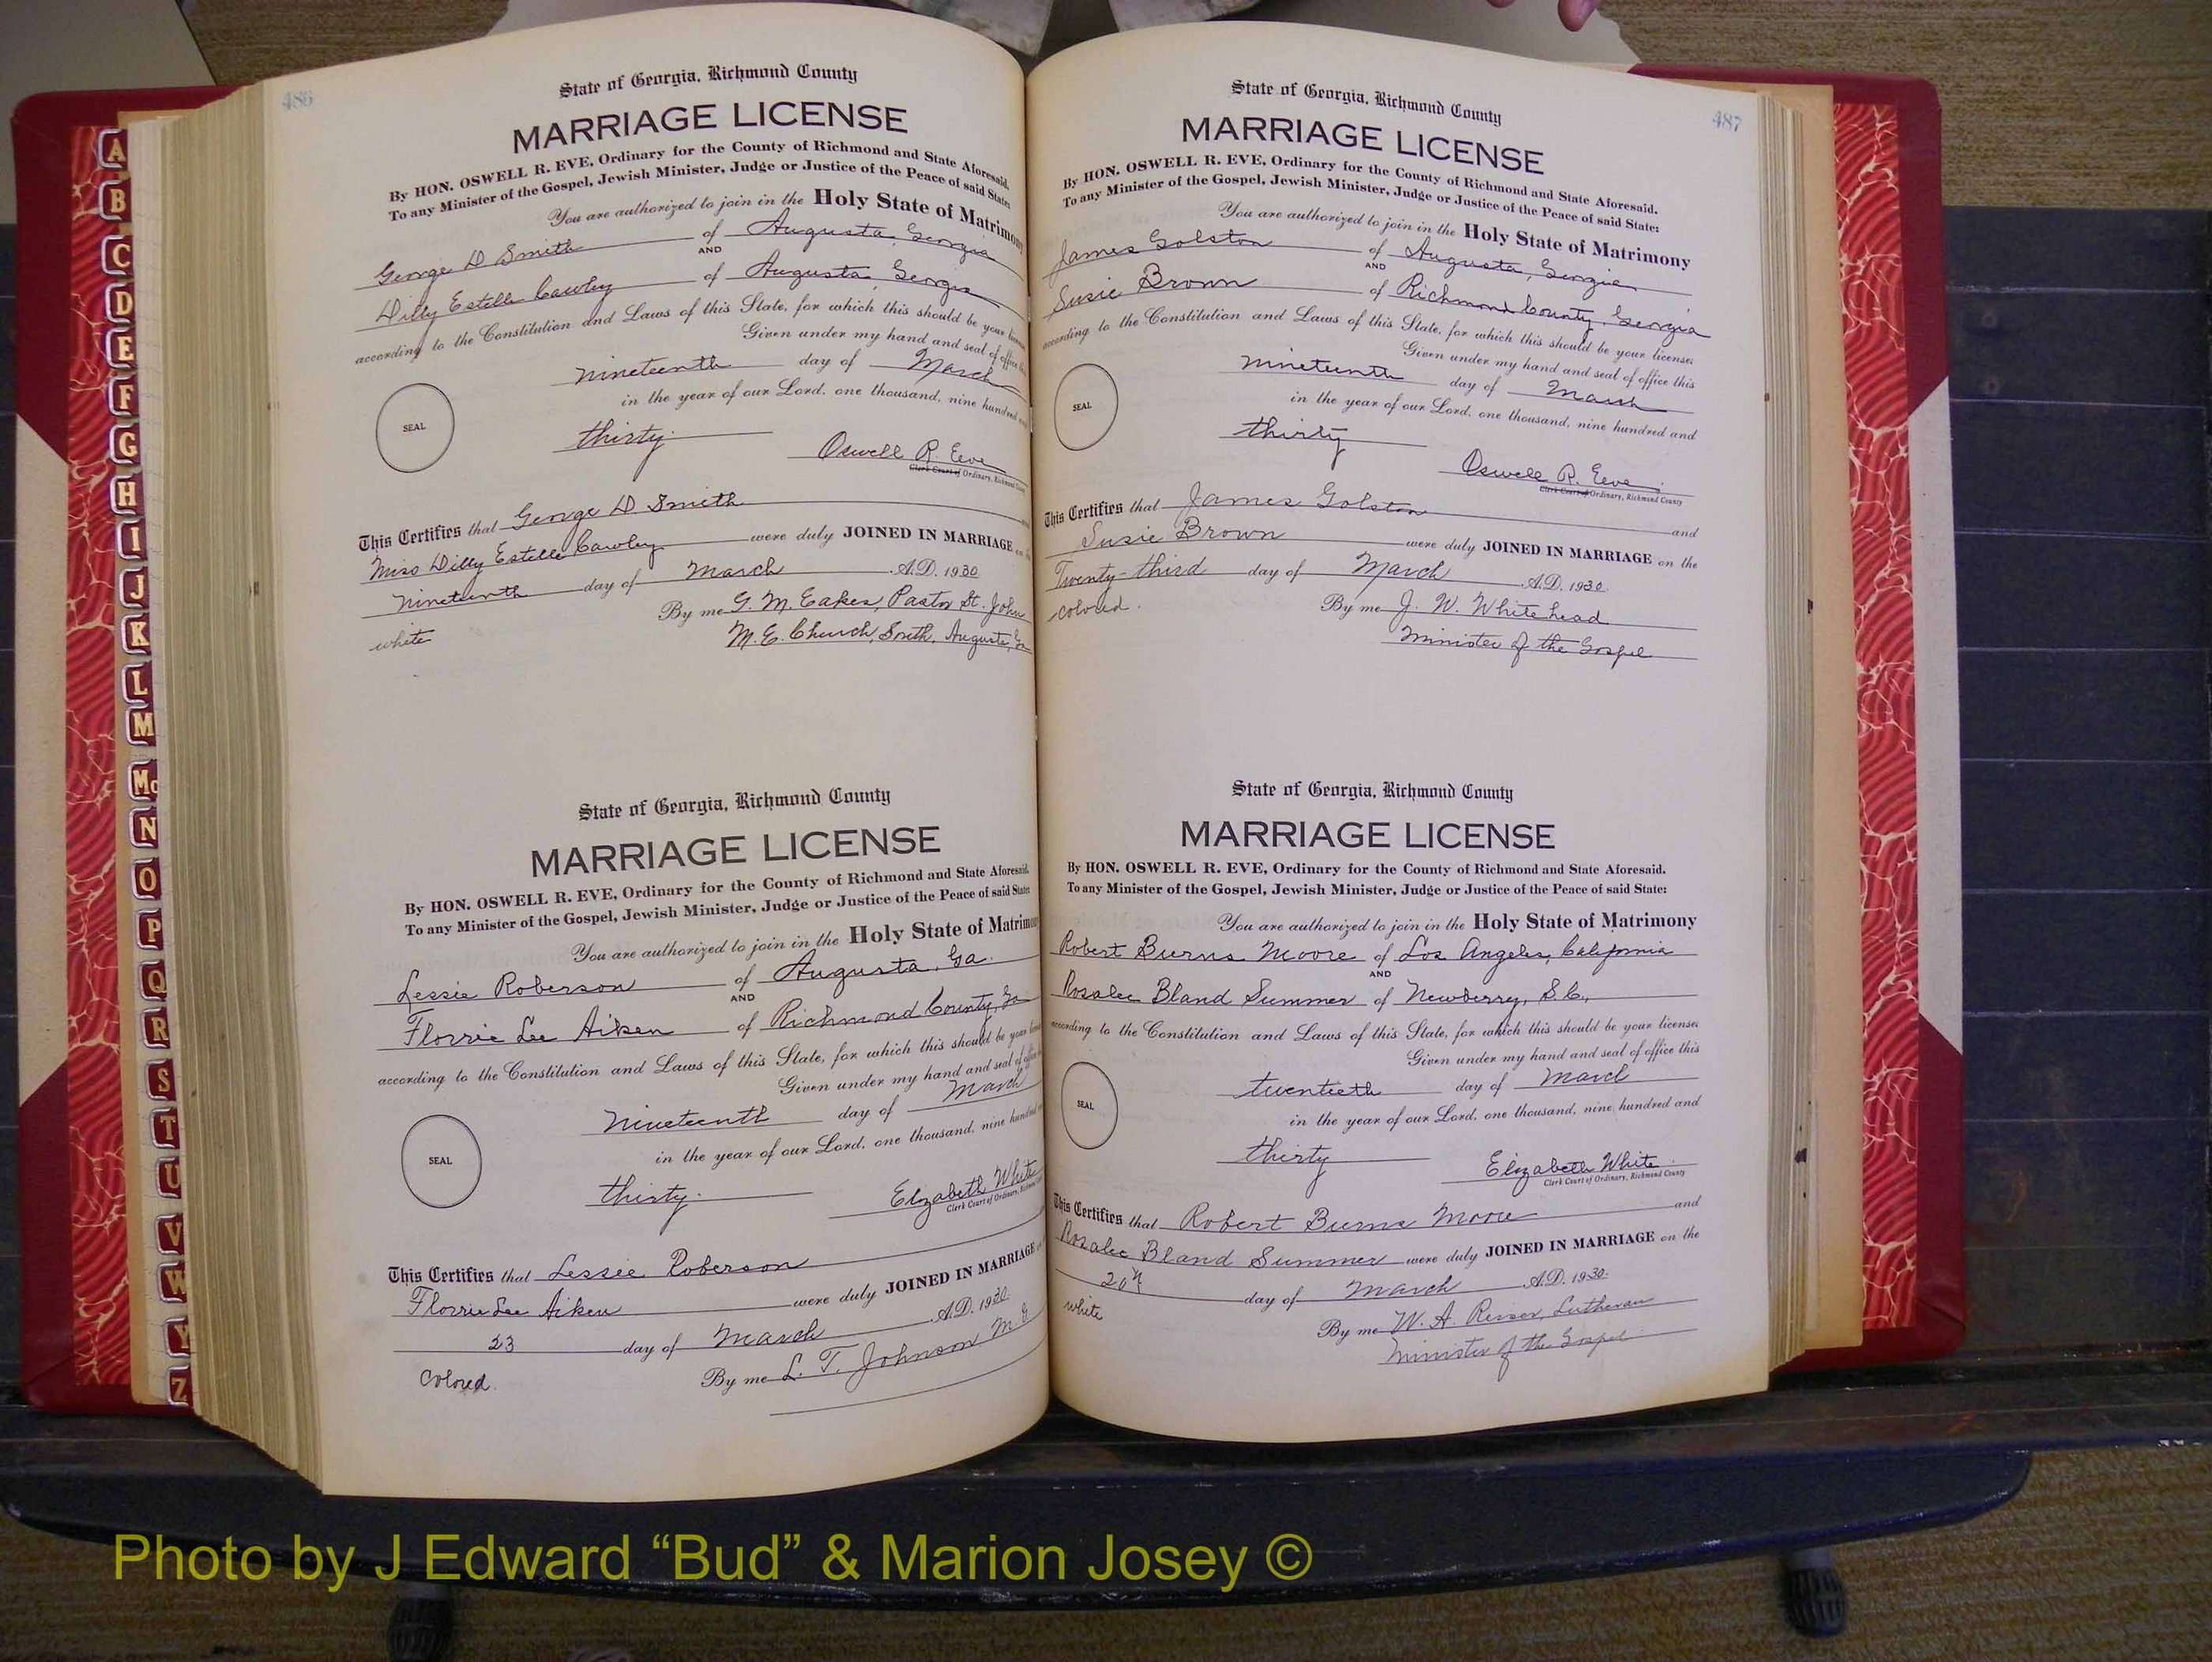 A
B
C
D
E
F
G
H
I
J
K
L
M
Mc
N
O
P
Q
R
S
T
U
V
W
Y
Z
486
State of Georgia, Richmond County
MARRIAGE LICENSE
By HON. OSWELL R. EVE, Ordinary for the County of Richmond and State Aforesaid.
To any Minister of the Gospel, Jewish Minister, Judge or Justice of the Peace of said State:
You are authorized to join in the Holy State of Matrimony
George D Smith of Augusta, Georgia
AND
Dilly Estelle Cawley of Augusta, Georgia
according to the Constitution and Laws of this State, for which this should be your
Given under my hand and seal of office
nineteenth day of March
in the year of our Lord, one thousand, nine hundred
SEAL
thirty.
Oswell R. Eve
Clerk Court of Ordinary, Richmond
This Certifies that George D Smith
Miss Dilly Estelle Cawley were duly JOINED IN MARRIAGE on
nineteenth day of March A.D. 1930
By me G. M. Eakes, Pastor St. John
white M. E. Church, South, Augusta, Ga
State of Georgia, Richmond County
MARRIAGE LICENSE
By HON. OSWELL R. EVE, Ordinary for the County of Richmond and State Aforesaid.
To any Minister of the Gospel, Jewish Minister, Judge or Justice of the Peace of said State:
You are authorized to join in the Holy State of Matrimony
Lessie Roberson of Augusta, Ga.
AND
Florrie Lee Aiken of Richmond County, Ga
according to the Constitution and Laws of this State, for which this should be your
Given under my hand and seal of office
Nineteenth day of March
in the year of our Lord, one thousand, nine hundred
SEAL
thirty.
Elizabeth White
Clerk Court of Ordinary, Richmond
This Certifies that Lessie Roberson
Florrie Lee Aiken were duly JOINED IN MARRIAGE
23 day of March A.D. 1930.
Colored. By me L. T. Johnson M G
487
State of Georgia, Richmond County
MARRIAGE LICENSE
By HON. OSWELL R. EVE, Ordinary for the County of Richmond and State Aforesaid.
To any Minister of the Gospel, Jewish Minister, Judge or Justice of the Peace of said State:
You are authorized to join in the Holy State of Matrimony
James Golston of Augusta, Georgia
AND
Susie Brown of Richmond County, Georgia
according to the Constitution and Laws of this State, for which this should be your license;
Given under my hand and seal of office this
nineteenth day of March
in the year of our Lord, one thousand, nine hundred and
SEAL
thirty
Oswell R. Eve
Clerk Court of Ordinary, Richmond County
This Certifies that James Golston and
Susie Brown were duly JOINED IN MARRIAGE on the
Twenty-third day of March A.D. 1930.
colored. By me J. W. Whitehead
Minister of the Gospel
State of Georgia, Richmond County
MARRIAGE LICENSE
By HON. OSWELL R. EVE, Ordinary for the County of Richmond and State Aforesaid.
To any Minister of the Gospel, Jewish Minister, Judge or Justice of the Peace of said State:
You are authorized to join in the Holy State of Matrimony
Robert Burns Moore of Los Angeles, California
AND
Rosalee Bland Summer of Newberry, S.C.,
according to the Constitution and Laws of this State, for which this should be your license;
Given under my hand and seal of office this
twentieth day of March
in the year of our Lord, one thousand, nine hundred and
SEAL
thirty
Elizabeth White
Clerk Court of Ordinary, Richmond County
This Certifies that Robert Burns Moore and
Rosalee Bland Summer were duly JOINED IN MARRIAGE on the
20th day of March A.D. 1930.
white By me W. A. Reiser, Lutheran
Minister of the Gospel
Photo by J Edward “Bud” & Marion Josey ©